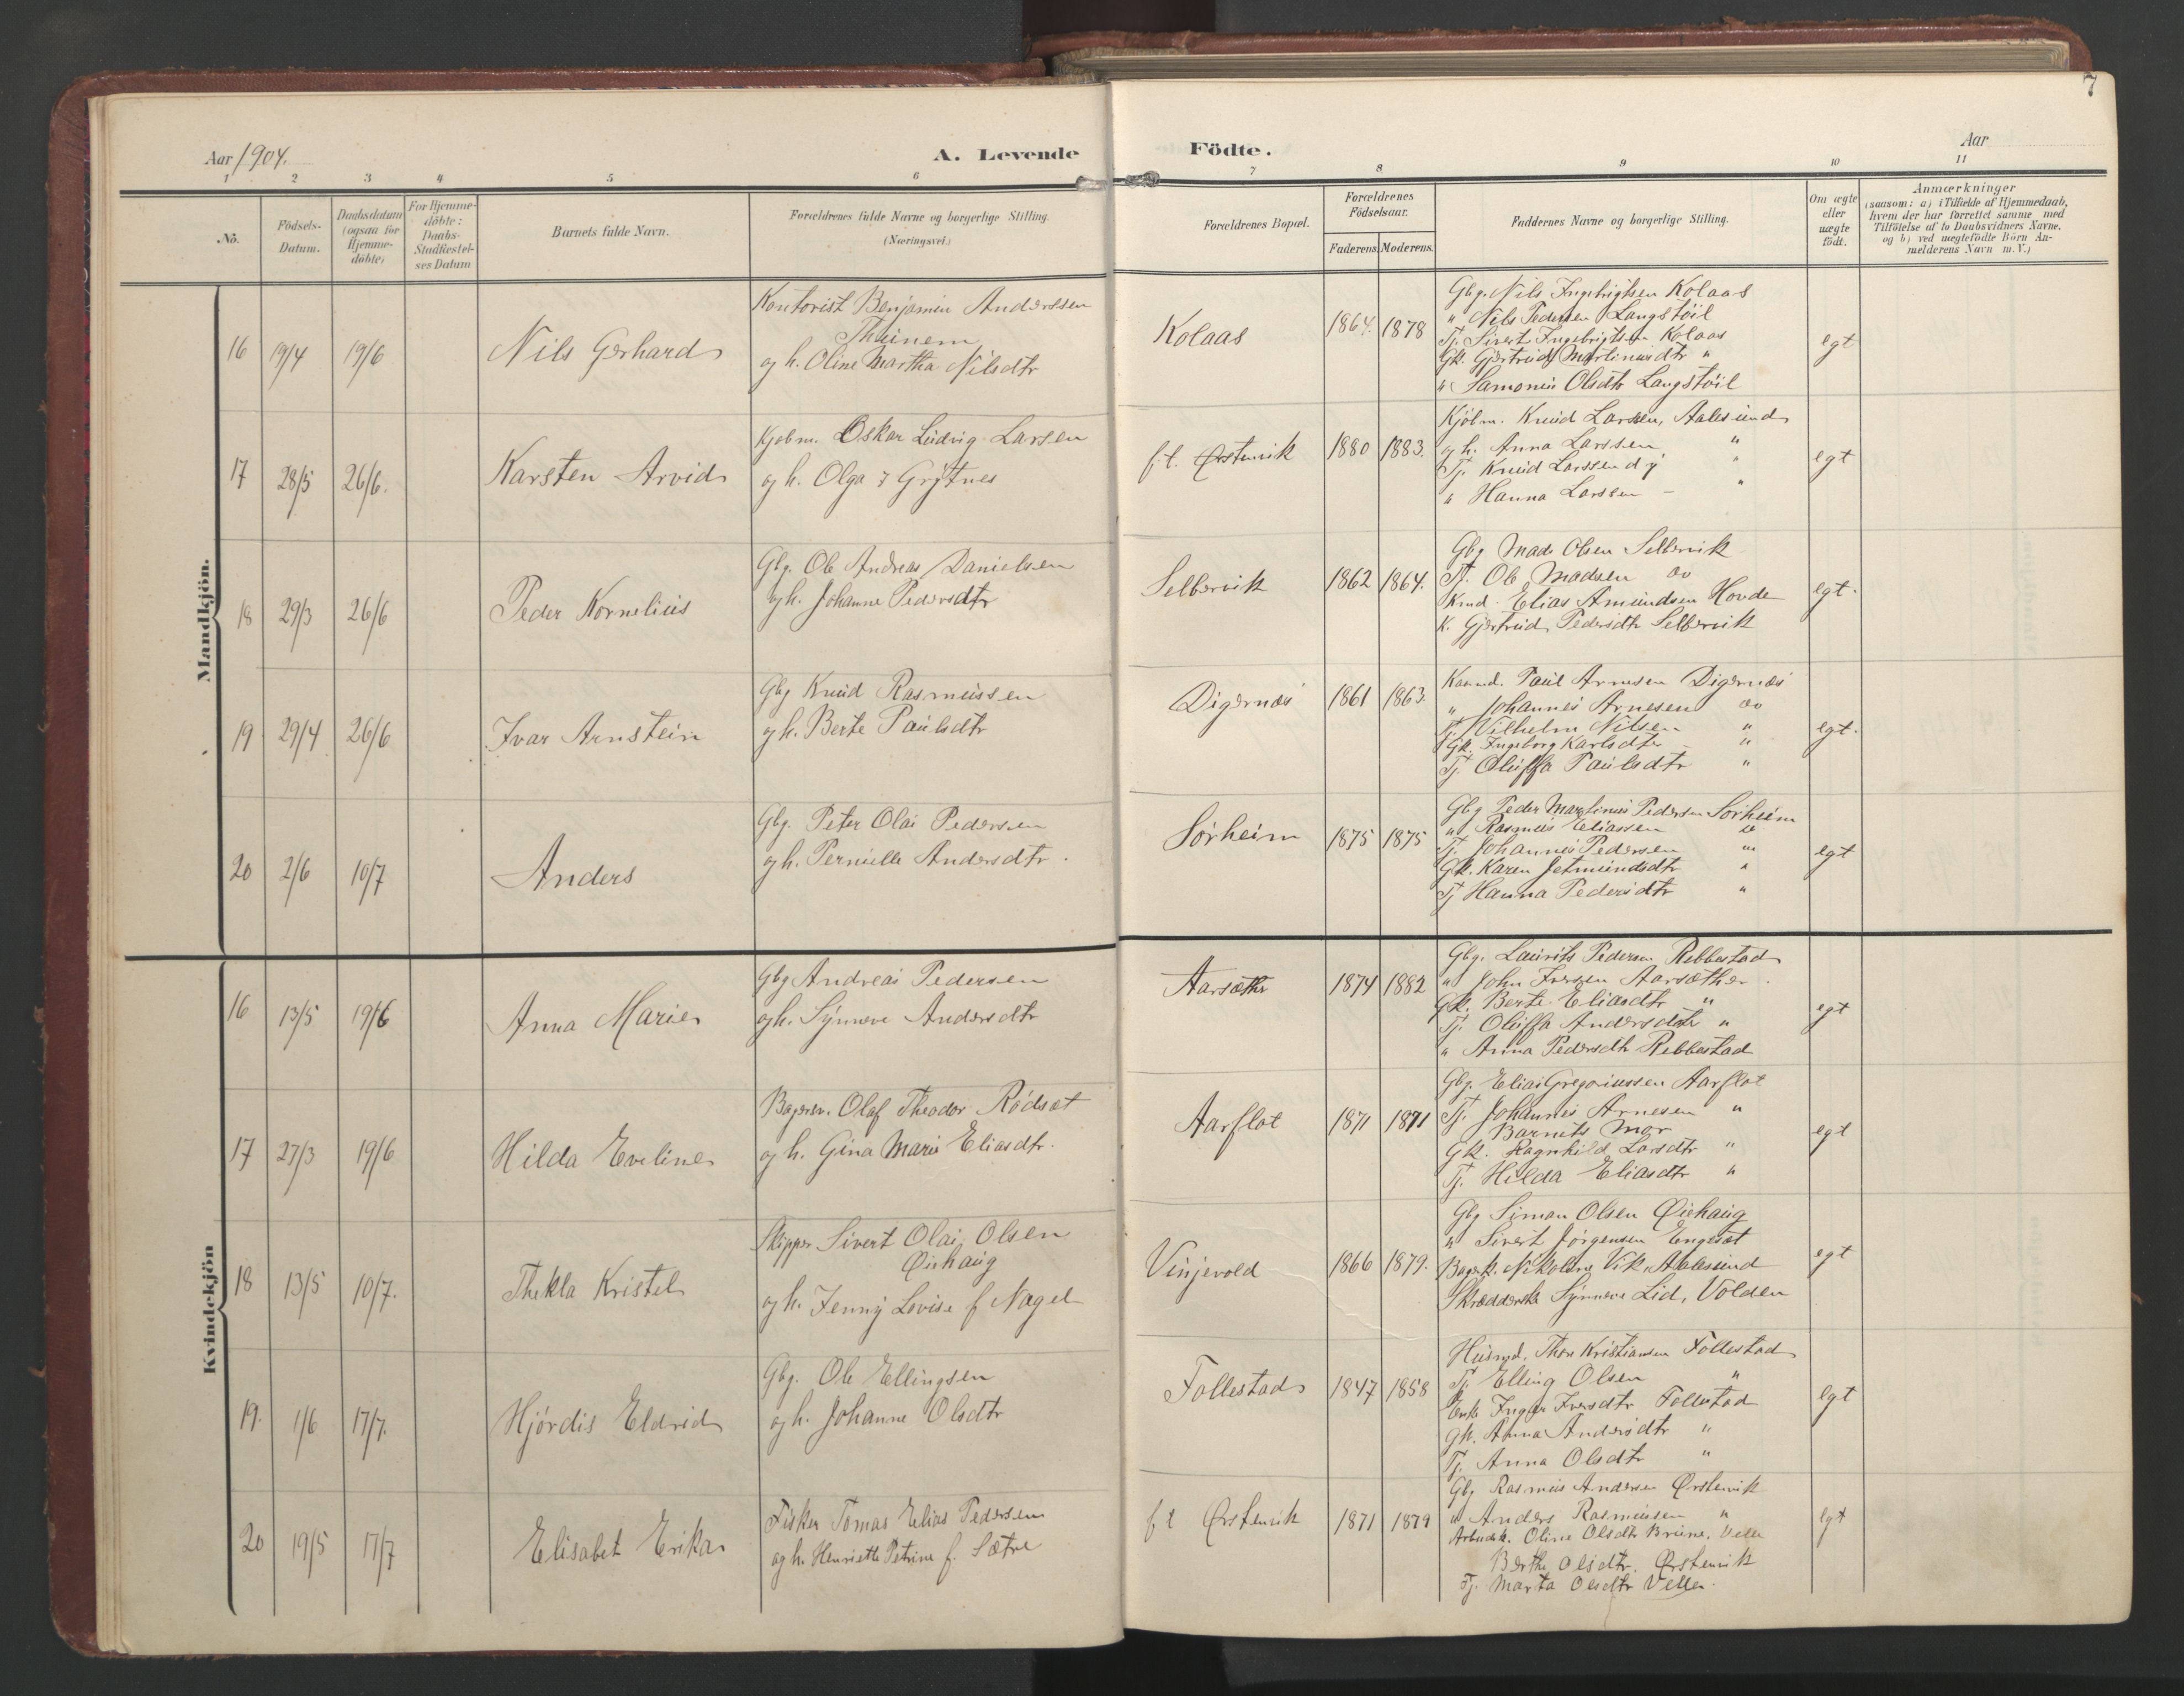 7
Aar 1904.
A. Levende
Födte.
Aar
1 2 3 4 5 6 7 8 9 10 11
No.
Födsels-
Datum.
Daabsdatum
(ogsaa for
Hjemme-
döbte)
For Hjemme-
döbte:
Daabs-
Stadfæstel-
ses Datum
Barnets fulde Navn.
Forældrenes fulde Navne og borgerlige Stilling.
(Næringsvei.)
Forældrenes Bopæl.
Forældrenes
Födselsaar.
Faderens. Moderens.
Faddernes Navne og borgerlige Stilling.
Om ægte
eller
uægte
födt.
Anmærkninger
(saasom: a) i Tilfælde af Hjemmedaab,
hvem der har forrettet samme med
Tilföielse af to Daabsvidners Navne,
og b) ved uægtefödte Börn An-
melderens Navn m.V.)
Mandkjön.
16 19/4 19/6 Nils Gerhard
Kontorist Benjamin Anderssen
Thuinem
og h. Oline Martha Nilsdtr
Kolaas 1864. 1878
Gbg. Nils Ingebrigtsen Kolaas
" Nils Pedersen Langstöil
Tj. Sivert Ingebrigtsen Kolaas
Gk. Gjertrud Martinusdtr "
" Samonie Olsdtr Langstöil
egt
17 28/5 26/6. Karsten Arvid
Kjøbm. Oskar Ludvig Larsen
og h. Olga f Grytnes
f.t. Ørstenvik 1880 1883.
Kjöbm. Knud Larssen, Aalesund
og h. Anna Larssen, "
Tj. Knud Larssen d y "
" Hanna Larssen - "
egt
18 29/3 26/6 Peder Kornelius
Gbg. Ole Andreas Danielsen
og h. Johanne Pedersdtr
Selbervik 1862 1864.
Gbg Mads Olsen Selbervik
Tj. Ole Madsen do
Kmd. Elias Amundsen Hovde
K. Gjertrud Pedersdtr Selbervik
egt.
19 29/4 26/6 Ivar Arnstein
Gbg Knud Rasmussen
og h. Berte Paulsdtr
Digernæs 1861 1863.
Kaarmd. Paul Arnesen Digernæs
" Johannes Arnesen do
Tj. Vilhelm Nilsen "
Gk. Ingeborg Karlsdtr - "
Tj. Oluffa Paulsdtr "
egt.
20 2/6 10/7 Anders
Gbg. Peter Olai Pedersen
og h. Pernille Andersdtr.
Sörheim 1875 1875
Gbg Peder Martinus Pedersen Sörheim
" Rasmus Eliassen "
Tj. Johannes Pedersen "
Gk. Karen Jetmundsdtr "
Tj Hanna Pedersdtr "
egt
Kvindekjön
16 13/5 19/6 Anna Marie
Gbg Andreas Pedersen
og h. Synneve Andersdtr
Aarsæther 1874 1882
Gbg. Laurits Pedersen Rebbestad
" John Iversen Aarsæther.
Gk. Berte Eliasdtr "
Tj. Oluffa Andersdtr "
" Anna Pedersdtr Rebbestad
egt
17 27/3 19/6 Hilda Eveline
Bagersv. Olaf Theodor Rödsæt
og h. Gina Marie Eliasdtr.
Aarflot 1871 1871
Gbg. Elias Gregoriussen Aarflot
Tj. Johannes Arnesen "
Barnets Mor
Gk. Ragnhild Larsdtr "
Tj. Hilda Eliasdtr "
egt
18 13/5 10/7. Thekla Kristel
Skipper Sivert Olai Olsen
Øiehaug
og h. Jenny Lovise f Nagel
Vinjevold 1866 1879.
Gbg Simon Olsen Øiehaug
" Sivert Jörgensen Engeset
Bagersk. Nikoline Vik, Aalesund
Skrædderske Synneve Lid, Volden
egt
19. 1/6 17/7. Hjördis Eldrid
Gbg. Ole Ellingsen
og h. Johanne Olsdtr
Follestad 1847 1858
Husmd. Thore Kristiansen Follestad
Tj. Elling Olsen "
Enke Inger Iversdtr Follestad
Gk. Anna Andersdtr "
Tj. Anna Olsdtr "
egt
20 19/5 17/7 Elisabet Erika
Fisker Tomas Elias Pedersen
og h. Henriette Petrine f. Sætre
f t Ørstenvik 1871 1879
Gbg Rasmus Andersen Ørstenvik
" Anders Rasmussen "
Arbeidsk. Oline Olsdtr Brune, Velle
Berthe Olsdtr. Ørstenvik
Tj. Marta Olsdtr Velle.
egt